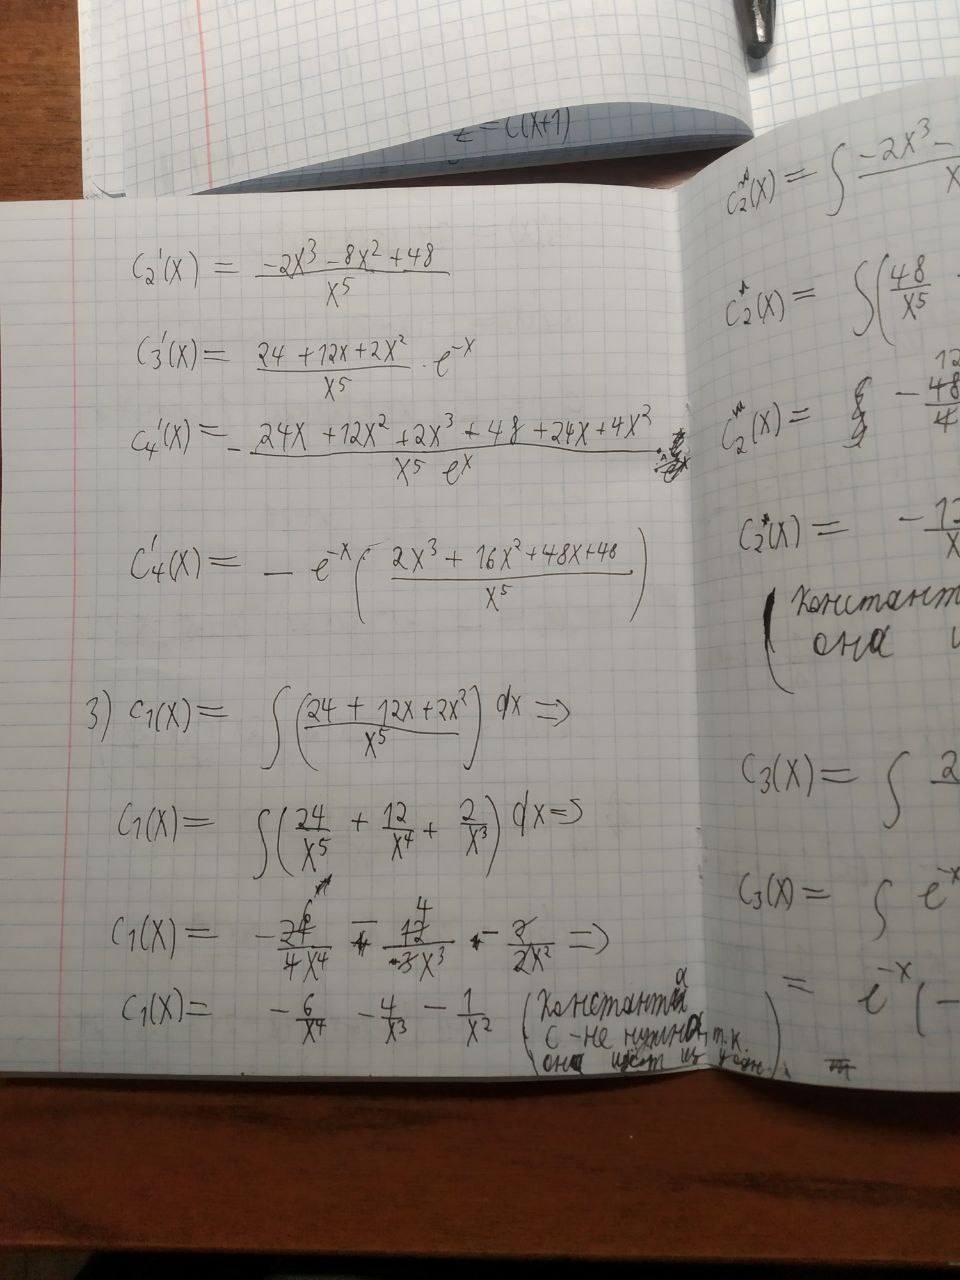 z = C(x+1)
C₂'(x) = (-2x³ - 8x² + 48)/x⁵
C₃'(x) = (24 + 12x + 2x²)/x⁵ · e^(-x)
C₄'(x) = - (24x + 12x² + 2x³ + 48 + 24x + 4x²)/(x⁵ e^x)
C₄'(x) = - e^(-x) ((2x³ + 16x² + 48x + 48)/x⁵)
3) C₁(x) = ∫((24 + 12x + 2x²)/x⁵) dx =>
C₁(x) = ∫(24/x⁵ + 12/x⁴ + 2/x³) dx =>
C₁(x) = - 24/4x⁴ - 12/3x³ - 2/2x² =>
C₁(x) = - 6/x⁴ - 4/x³ - 1/x²
(константа
С - не нужна, т.к.
она идёт из
C₂*(x) = ∫ (-2x³ -)/x
C₂*(x) = ∫(48/x⁵
C₂*(x) = - 48/4
12
C₂*(x) = - 12/x
(констант
она
C₃(x) = ∫ 2
C₃(x) = ∫ e^(-x)
= e^(-x) (-